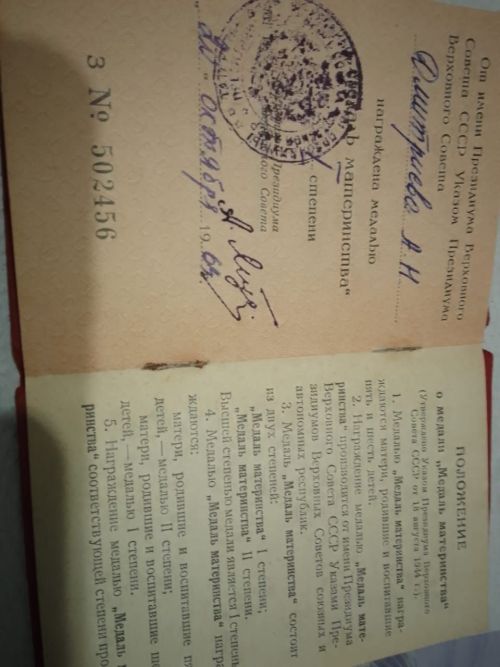 От имени Президиума Верховного
Совета СССР Указом Президиума
Верховного Совета
Дмитриева А. Н
награждена медалью
„Медаль материнства“
степени
Президиума
Верховного Совета
октября 19
З № 502456
ПОЛОЖЕНИЕ
о медали „Медаль материнства“
(Утверждено Указом Президиума Верховного
Совета СССР от 18 августа 1944 г.).
1. Медалью „Медаль материнства“ награ-
ждаются матери, родившие и воспитавшие
пять и шесть детей.
2. Награждение медалью „Медаль мате-
ринства“ производится от имени Президиума
Верховного Совета СССР Указами Пре-
зидиумов Верховных Советов союзных и
автономных республик.
3. Медаль „Медаль материнства“ состоит
из двух степеней:
„Медаль материнства“ I степени;
„Медаль материнства“ II степени.
Высшей степенью медали является I степень.
4. Медалью „Медаль материнства“ награ
ждаются:
матери, родившие и воспитавшие
детей, — медалью II степени;
матери, родившие и воспитавшие
детей, — медалью I степени.
5. Награждение медалью „Медаль
ринства“ соответствующей степени про